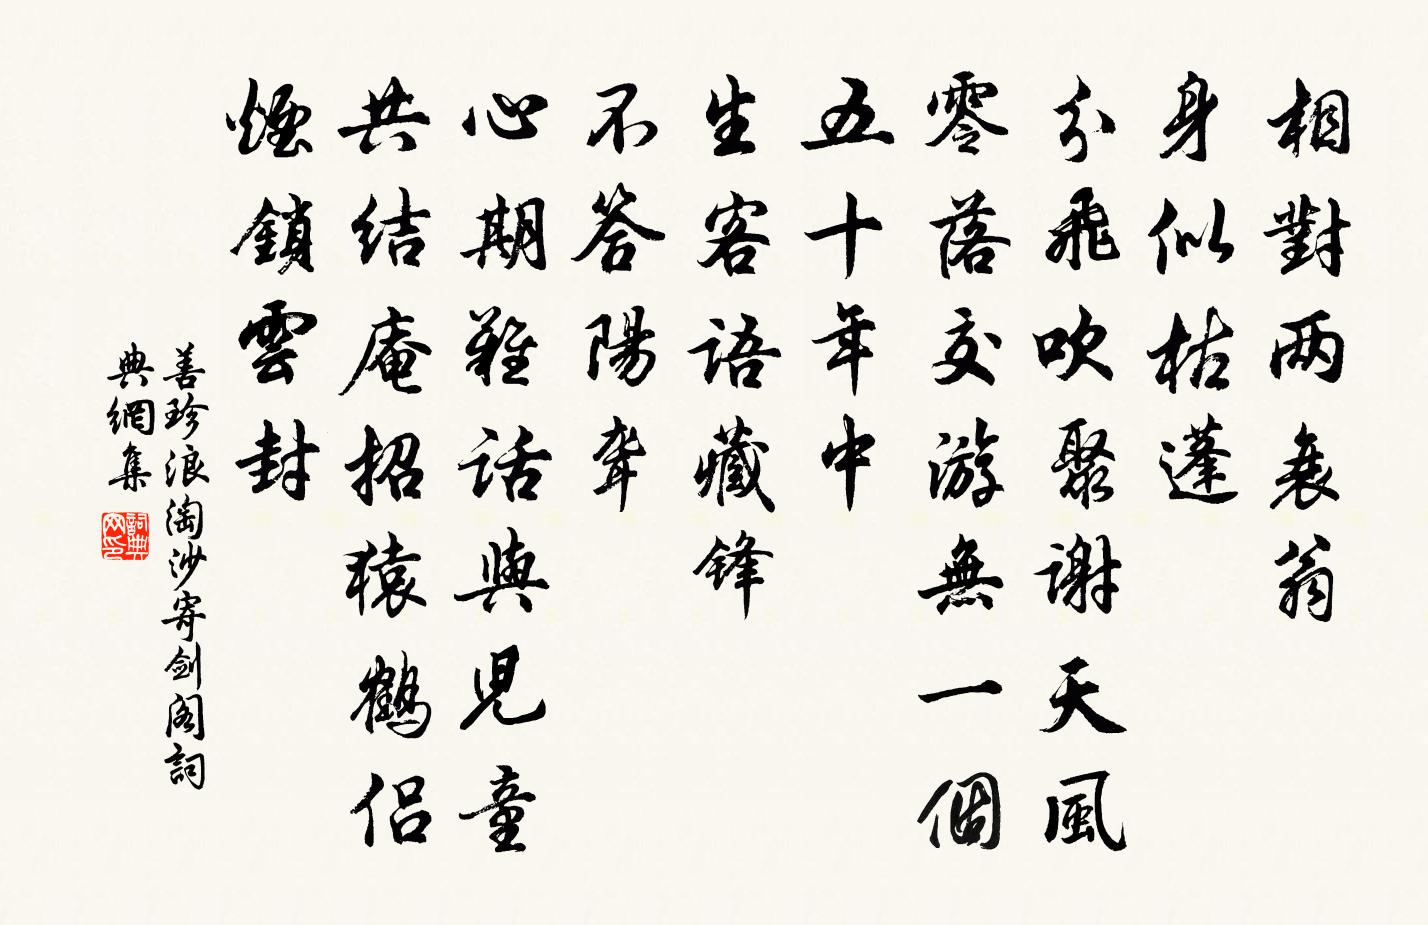 相對两衰翁
身似枯蓬
分飛吹聚謝天風
零落交游無一個
五十年中
生客語藏锋
不答陽聋
心期難話與児童
共結庵招猿鶴侣
煙鎖雲封
善珍浪淘沙寄剑阁詞
典網集
詞典网印